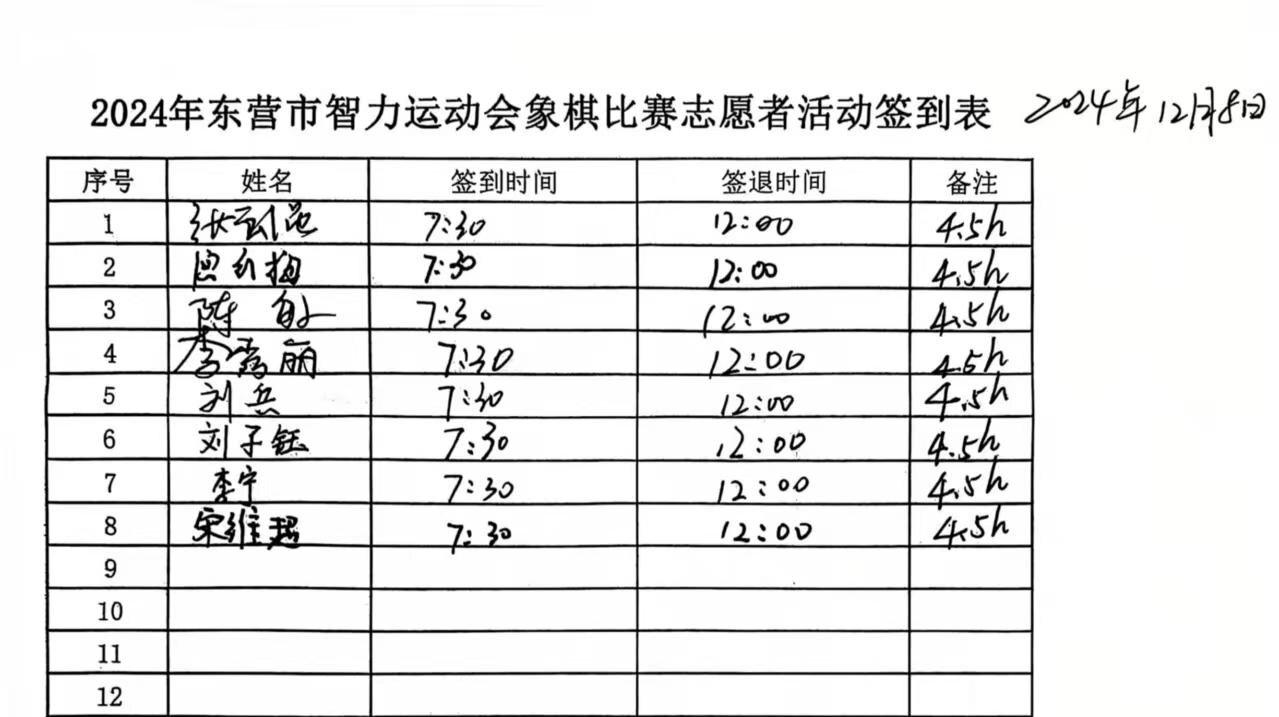 2024年东营市智力运动会象棋比赛志愿者活动签到表 2024年12月8日
序号 姓名 签到时间 签退时间 备注
1 7:30 12:00 4.5h
2 7:30 12:00 4.5h
3 陈 敏 7:30 12:00 4.5h
4 李嵩丽 7:30 12:00 4.5h
5 刘兵 7:30 12:00 4.5h
6 刘子钰 7:30 12:00 4.5h
7 李宁 7:30 12:00 4.5h
8 宋维超 7:30 12:00 4.5h
9
10
11
12